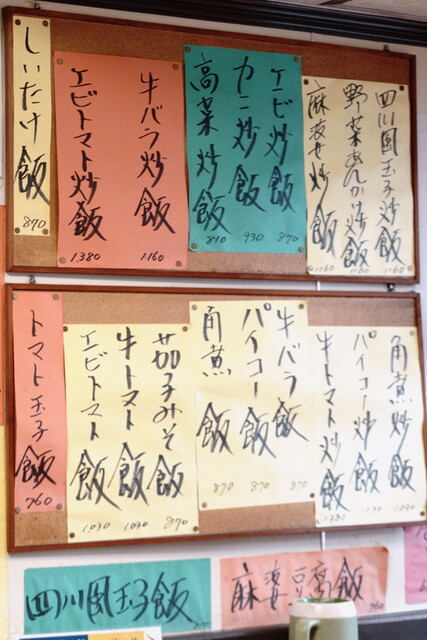 四川風玉子炒飯 1160
野菜あんかけ炒飯 1160
炒飯 1160
エビ炒飯 870
カニ炒飯 930
高菜炒飯 870
牛バラ炒飯 1160
エビトマト炒飯 1,380
しいたけ飯 870
角煮炒飯 1030
パイコー炒飯
牛トマト炒飯 1380
牛バラ飯 870
パイコー飯 870
角煮飯 870
茄子みそ飯 870
牛トマト飯 1030
エビトマト飯 1,030
トマト玉子飯 760
四川風玉子飯
麻婆豆腐飯 760